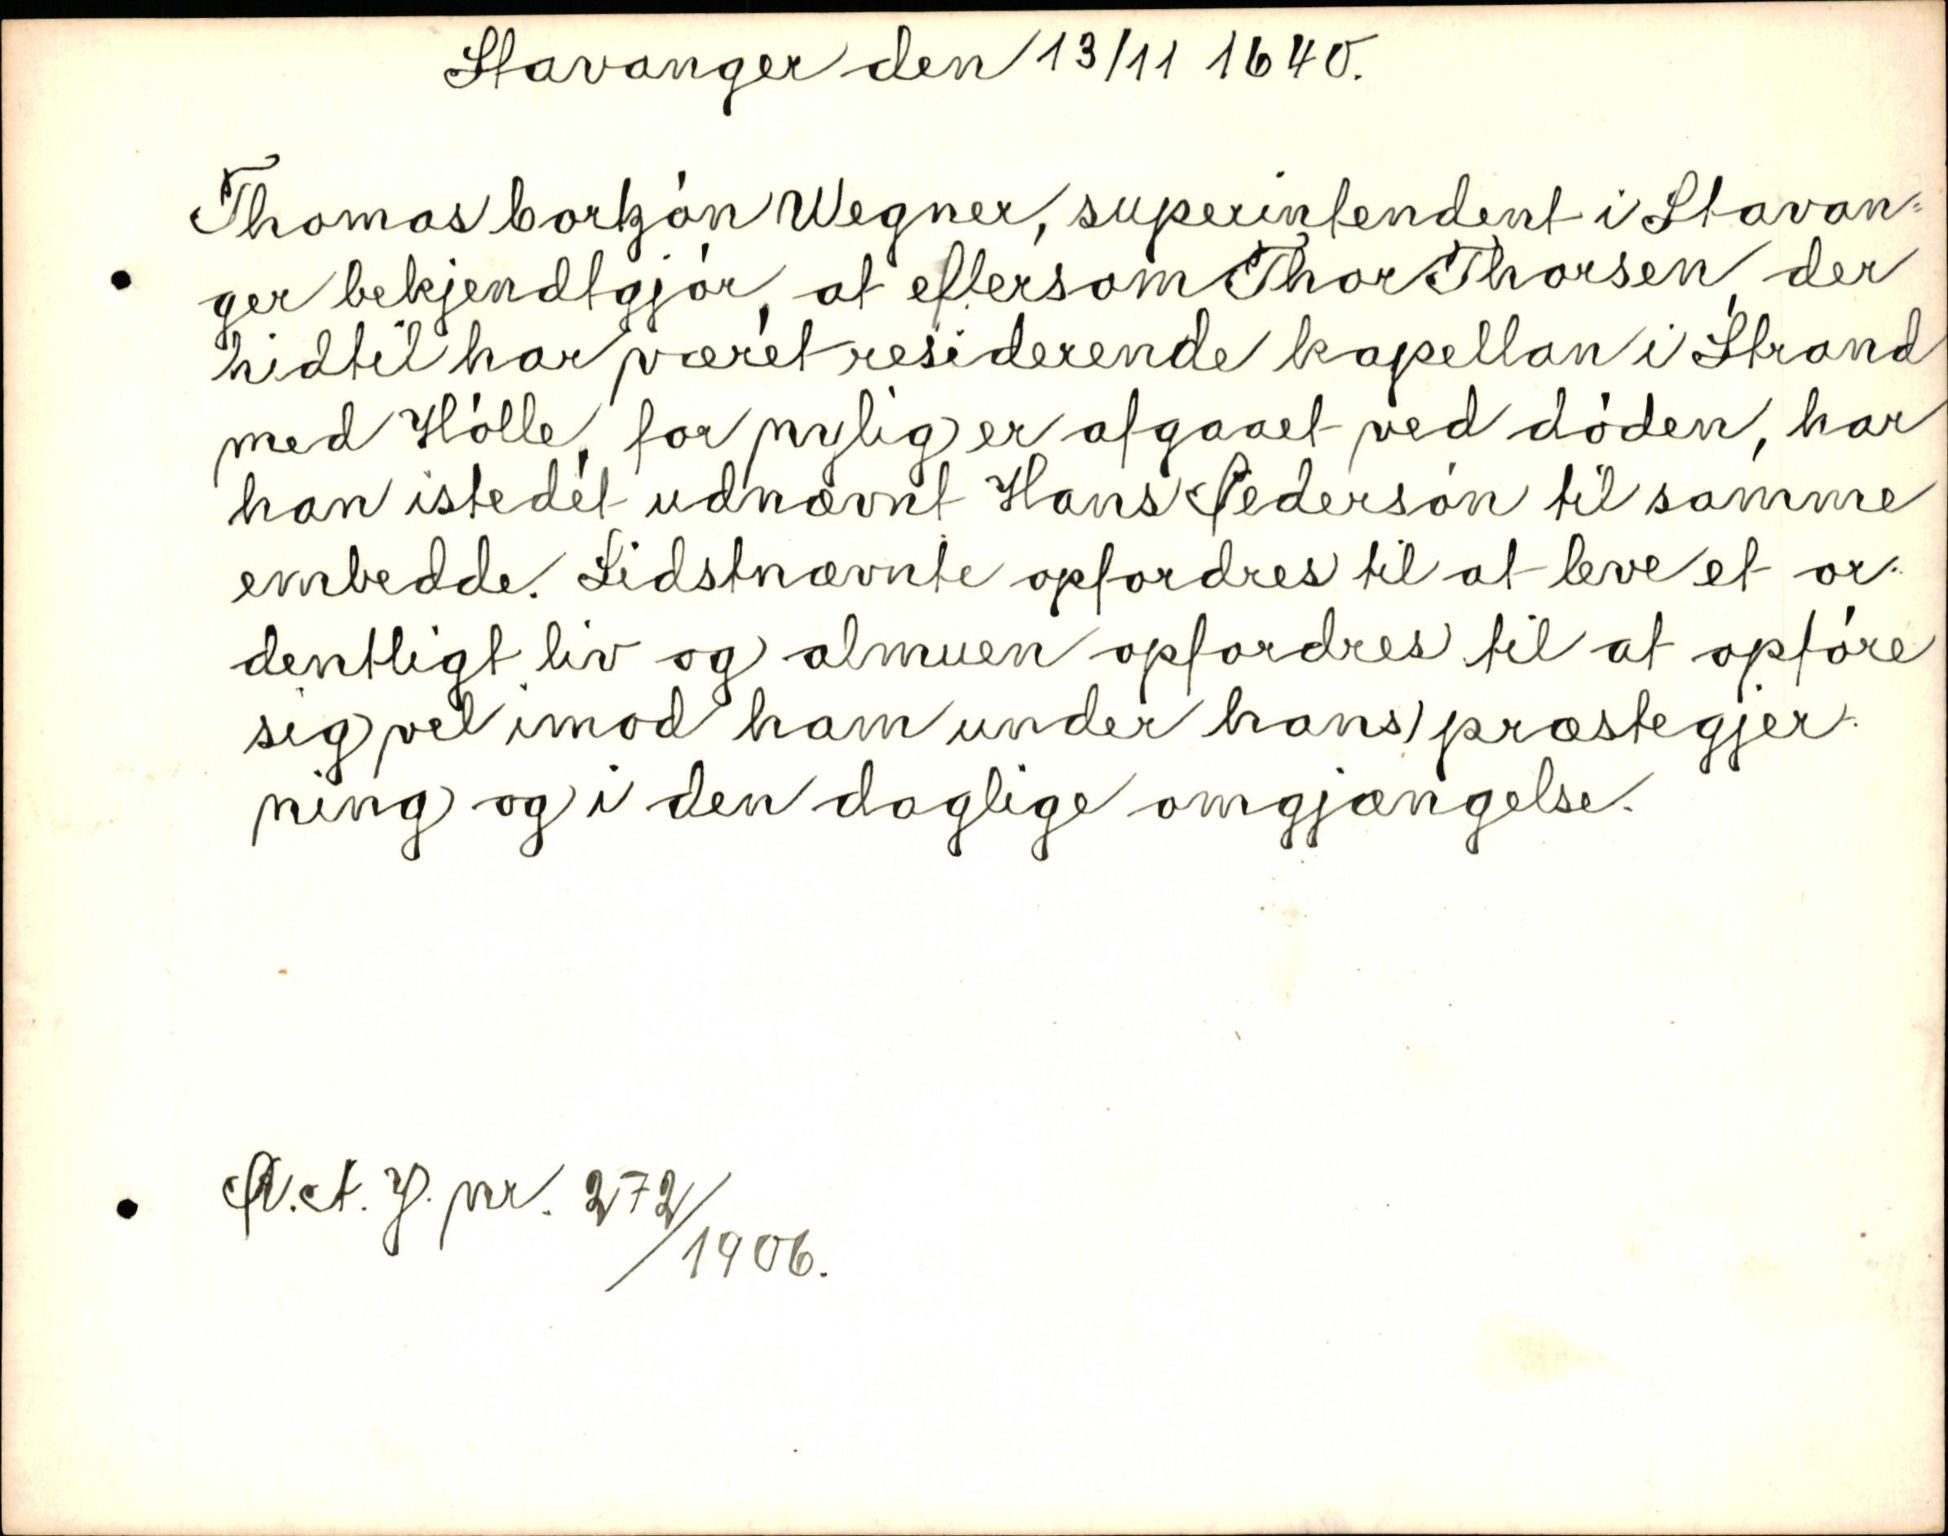 Stavanger den 13/11 1640.
Thomas Cortzön Wegner, superintendent i Stavan=
ger bekjendtgjör, at eftersom Thor Thorsen, der
hidtil har været residerende kapellan i Strand
med Hölle, for nylig er afgaaet ved döden, har
han istedet udnævnt Hans Pedersön til samme
embedde. Sidstnævnte opfordres til at leve et or-
dentligt liv og almuen opfordres til at opföre
sig vel imod ham under hans præstegjer-
ning og i den daglige omgjængelse.
A. A. J. nr. 272/1906.